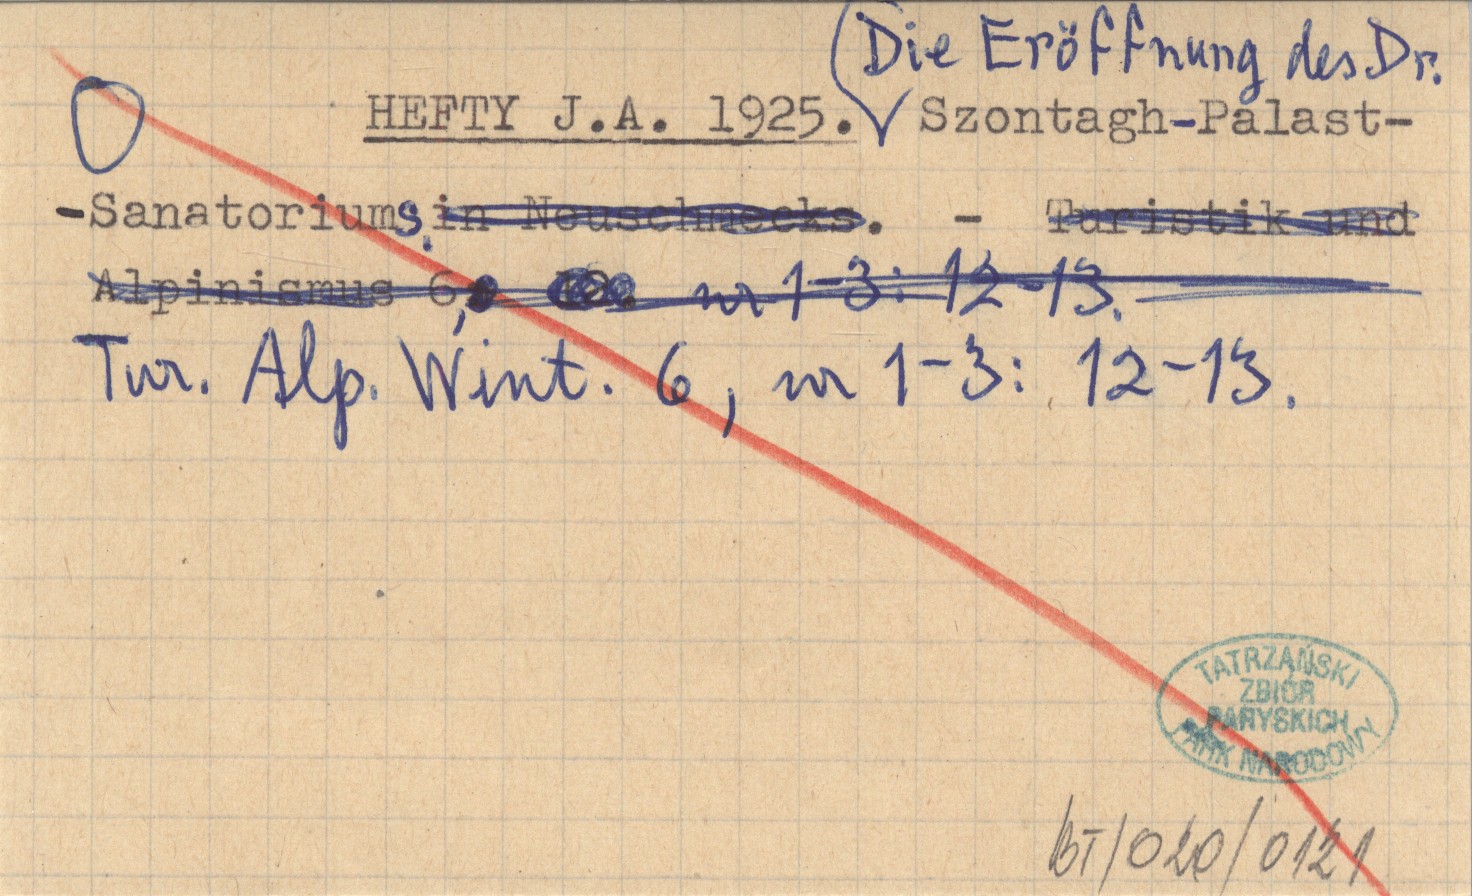 (Die Eröffnung des Dr.
HEFTY J.A. 1925. Szontagh-Palast-
-Sanatoriums. in Neuschmecks. - Turistik und
Alpinismus 6, nr 1-3: 12-13.
Tur. Alp. Wint. 6, nr 1-3: 12-13.
TATRZAŃSKI
ZBIÓR
PARYSKICH
PARK NARODOWY
BT/020/0121